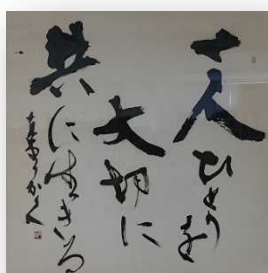 一人ひとりを
大切に
共に生きる